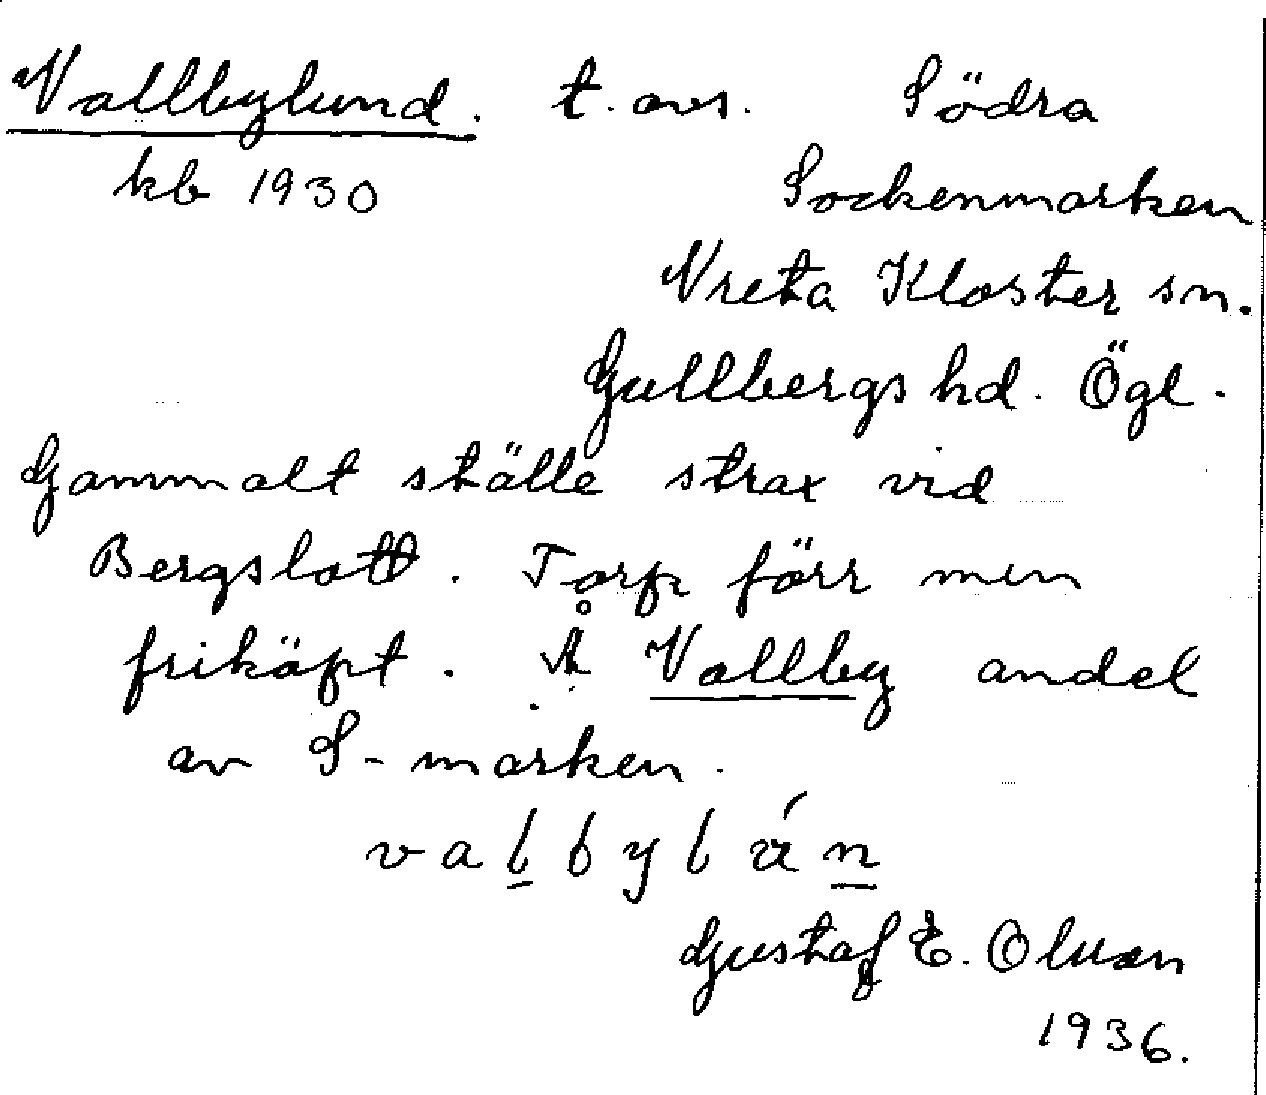 Vallbylund. t. avs. Södra
kb 1930 Sockenmarken
Vreta Kloster sn.
Gullbergs hd. Ögl.
Gammalt ställe strax vid
Bergslott. Torp förr men
friköpt. Å Vallby andel
av S-marken.
valbylán
Gustaf E. Olsson
1936.